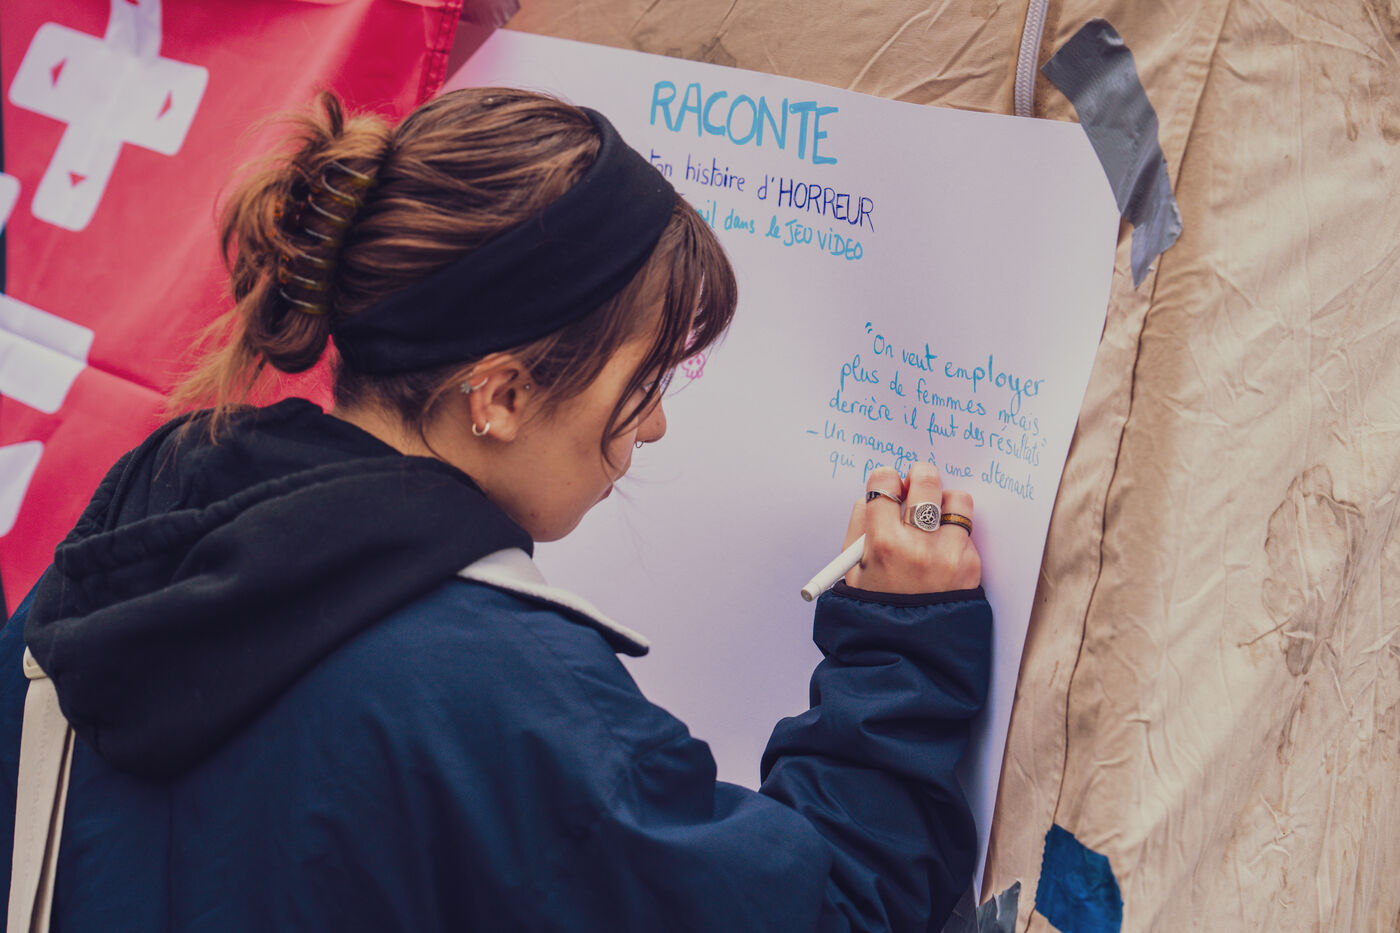 RACONTE
ton histoire d'HORREUR
dans le JEU VIDEO
"On veut employer
plus de femmes mais
derrière il faut des résultats"
- Un manager à une alternante
qui